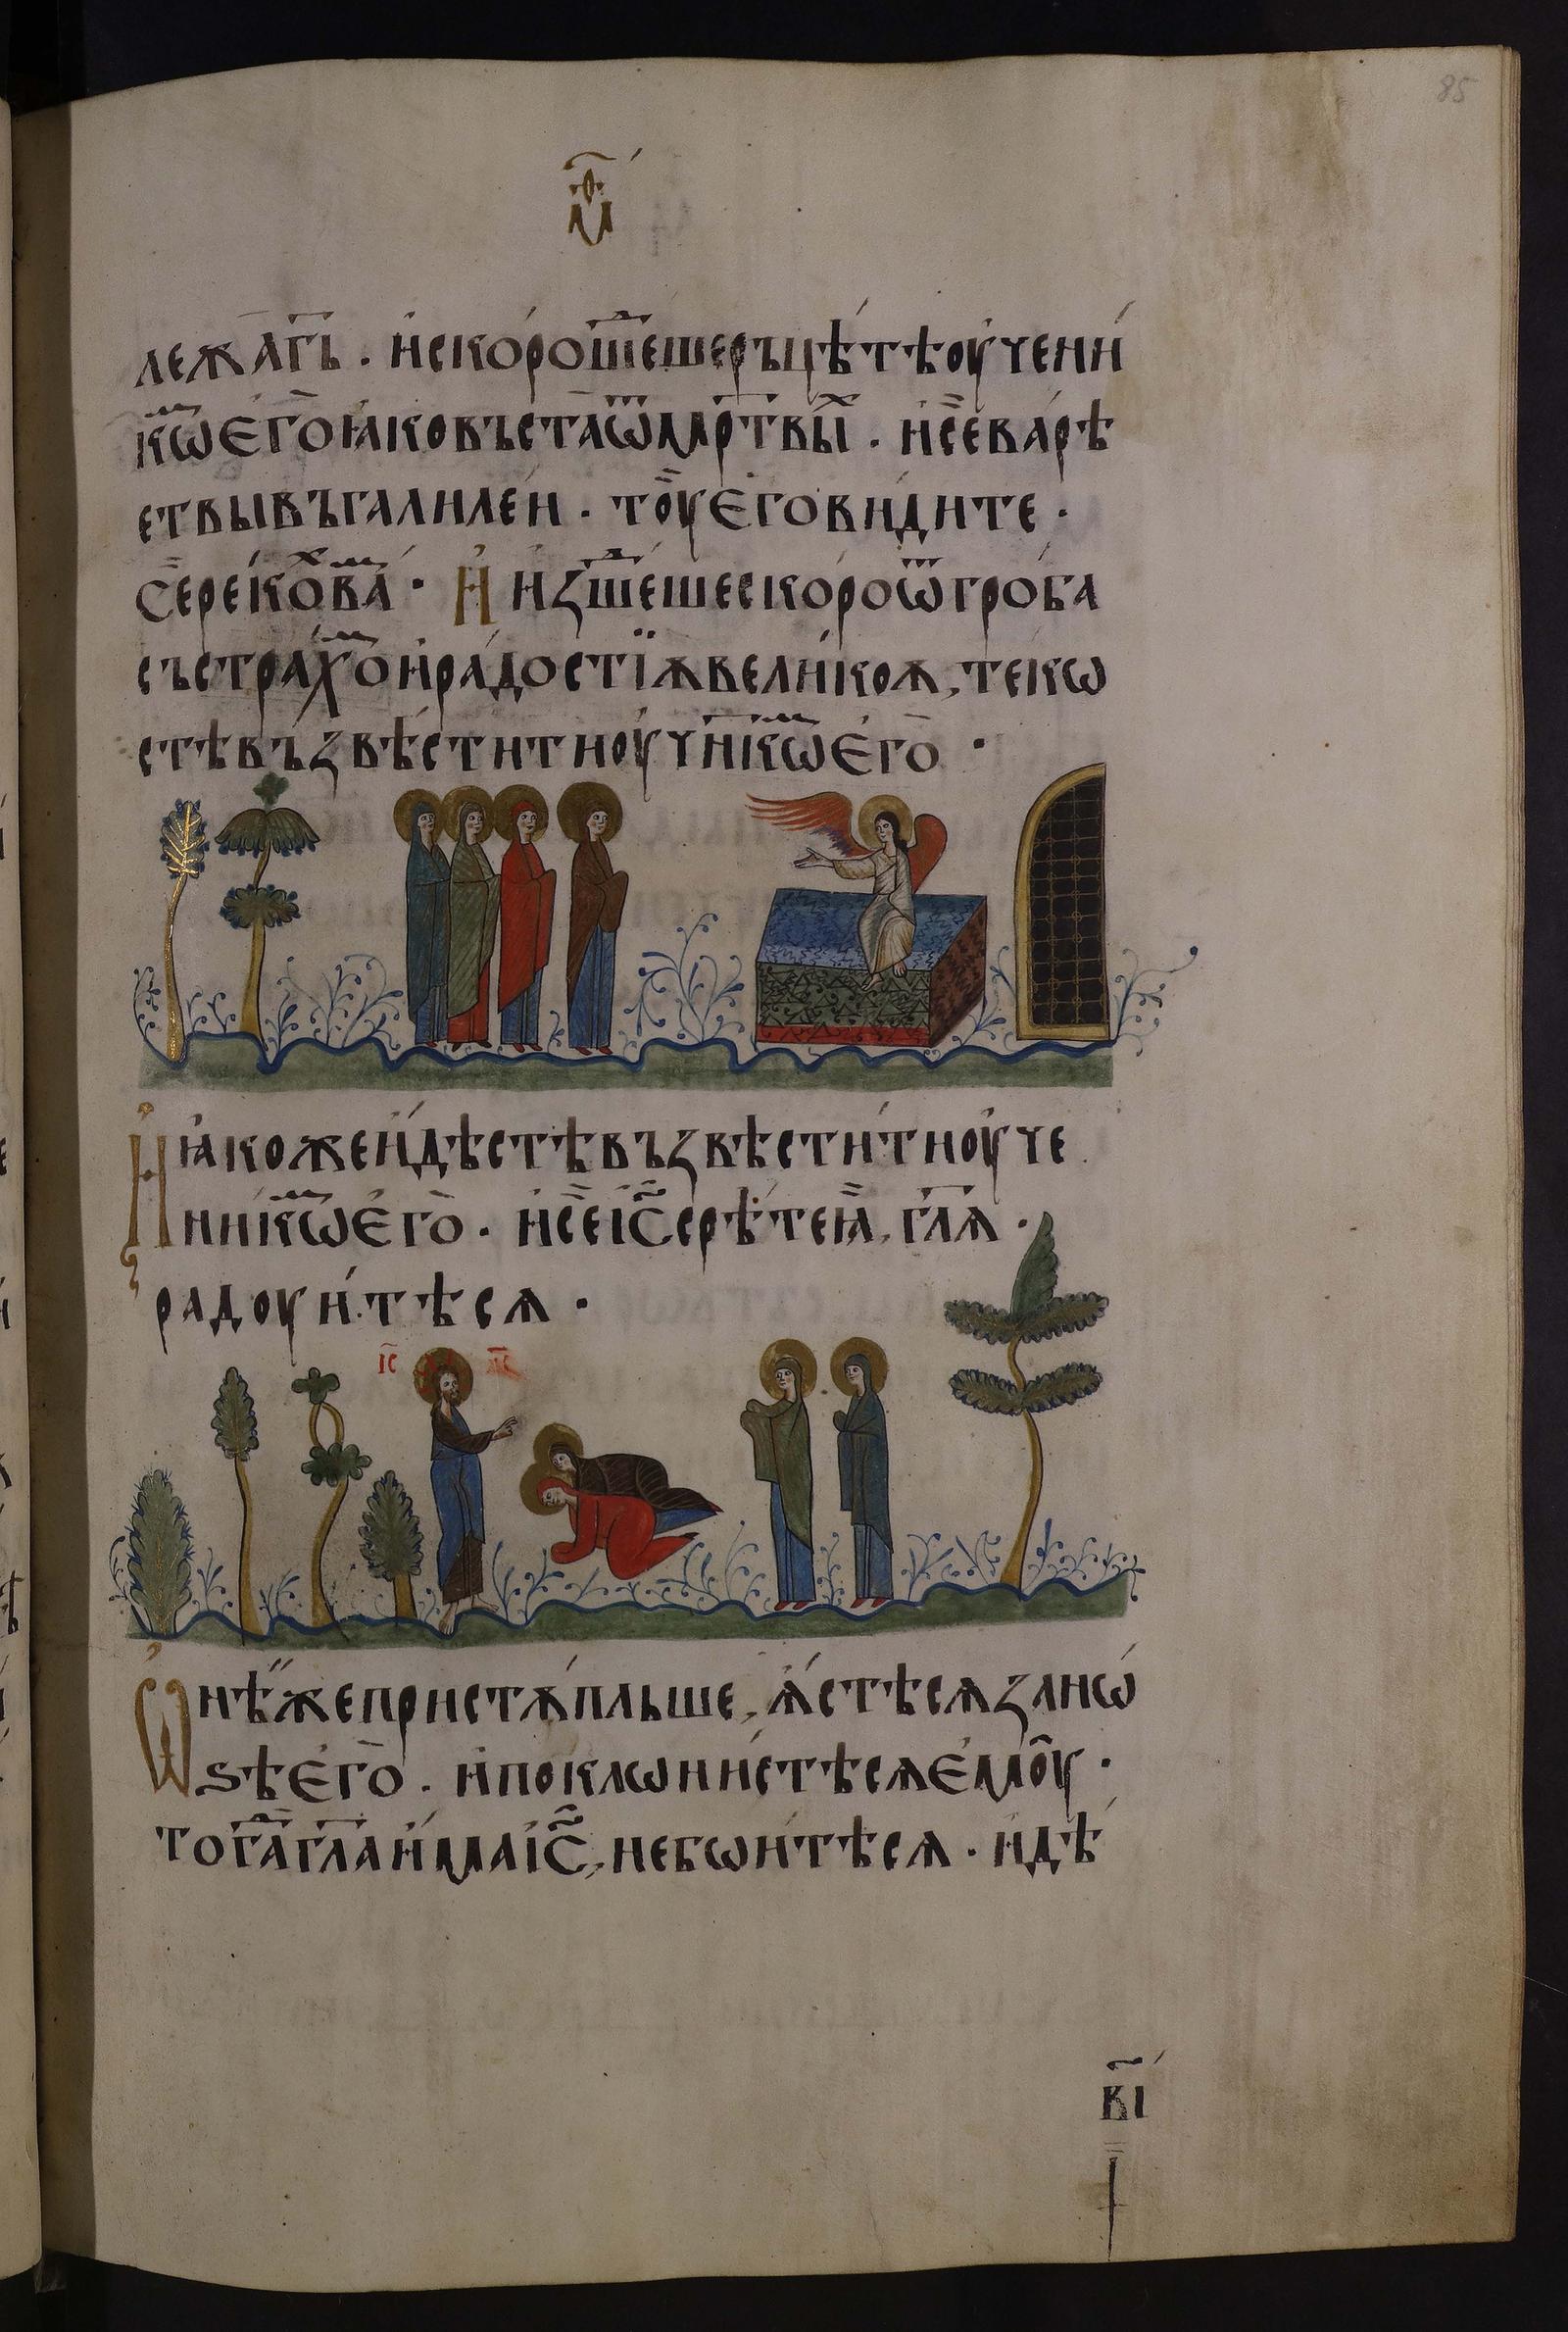 85
м҃ѳ
лежа г҃ь . и҆ско́рошⷣешерьцѣ́тѣоу҆чени́
кѡⷨе҆го̀ꙗ҆́ковъстаѿмр҃твыⷯ . и҆се̏варѣ́
етвывъгалиле́и . тоу̏е҆гови́дите .
се̏реко́ⷯваⷨ . И҆ и҆зшⷣешескороѿгро́ба
състра́хоⷨи҆ра́достїѫвели́коѫ, текѡ
стѣвъзвѣ́стит иоу҆ч҃нїкѡⷨе҆го̀ .
И҆ ꙗ҆коже и҆дѣстѣвъзвѣсти́т иоу҆че
никѡⷨе҆го̀ . и҆се̏і҆с҃срѣ́теѧ, гл҃ѧ .
радоуи́тѣсѧ .
І҃С Х҃С
Ѡ҆нѣ́жепристѫ́пльше, ѧ҆́стѣсѧзанѡ́
ѕѣе҆го̀ . и҆поклѡни́стѣсѧе҆мо́у .
тогⷣагл҃аи҆́маі҆с҃, небѡи́тѣсѧ . идѣ́
в҃і